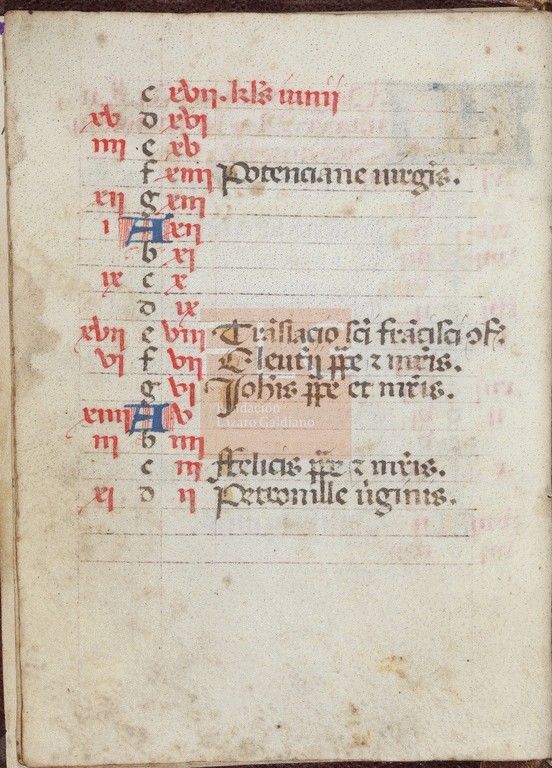 c xvii. kl's iunii
xv d xvi
iiii e xv
f xiiii Potenciane uirgis.
xii g xiii
i A xii
b xi
ix c x
d ix
xvii e viii Traslacio sci francisci ɔf.
vi f vii Eleutii ppe z mris.
g vi Johis ppe et mris.
xiiii A v
iii b iiii
c iii ffelicis ppe z mris.
xi d ii Petronille uginis.
Fundación
Lázaro Galdiano